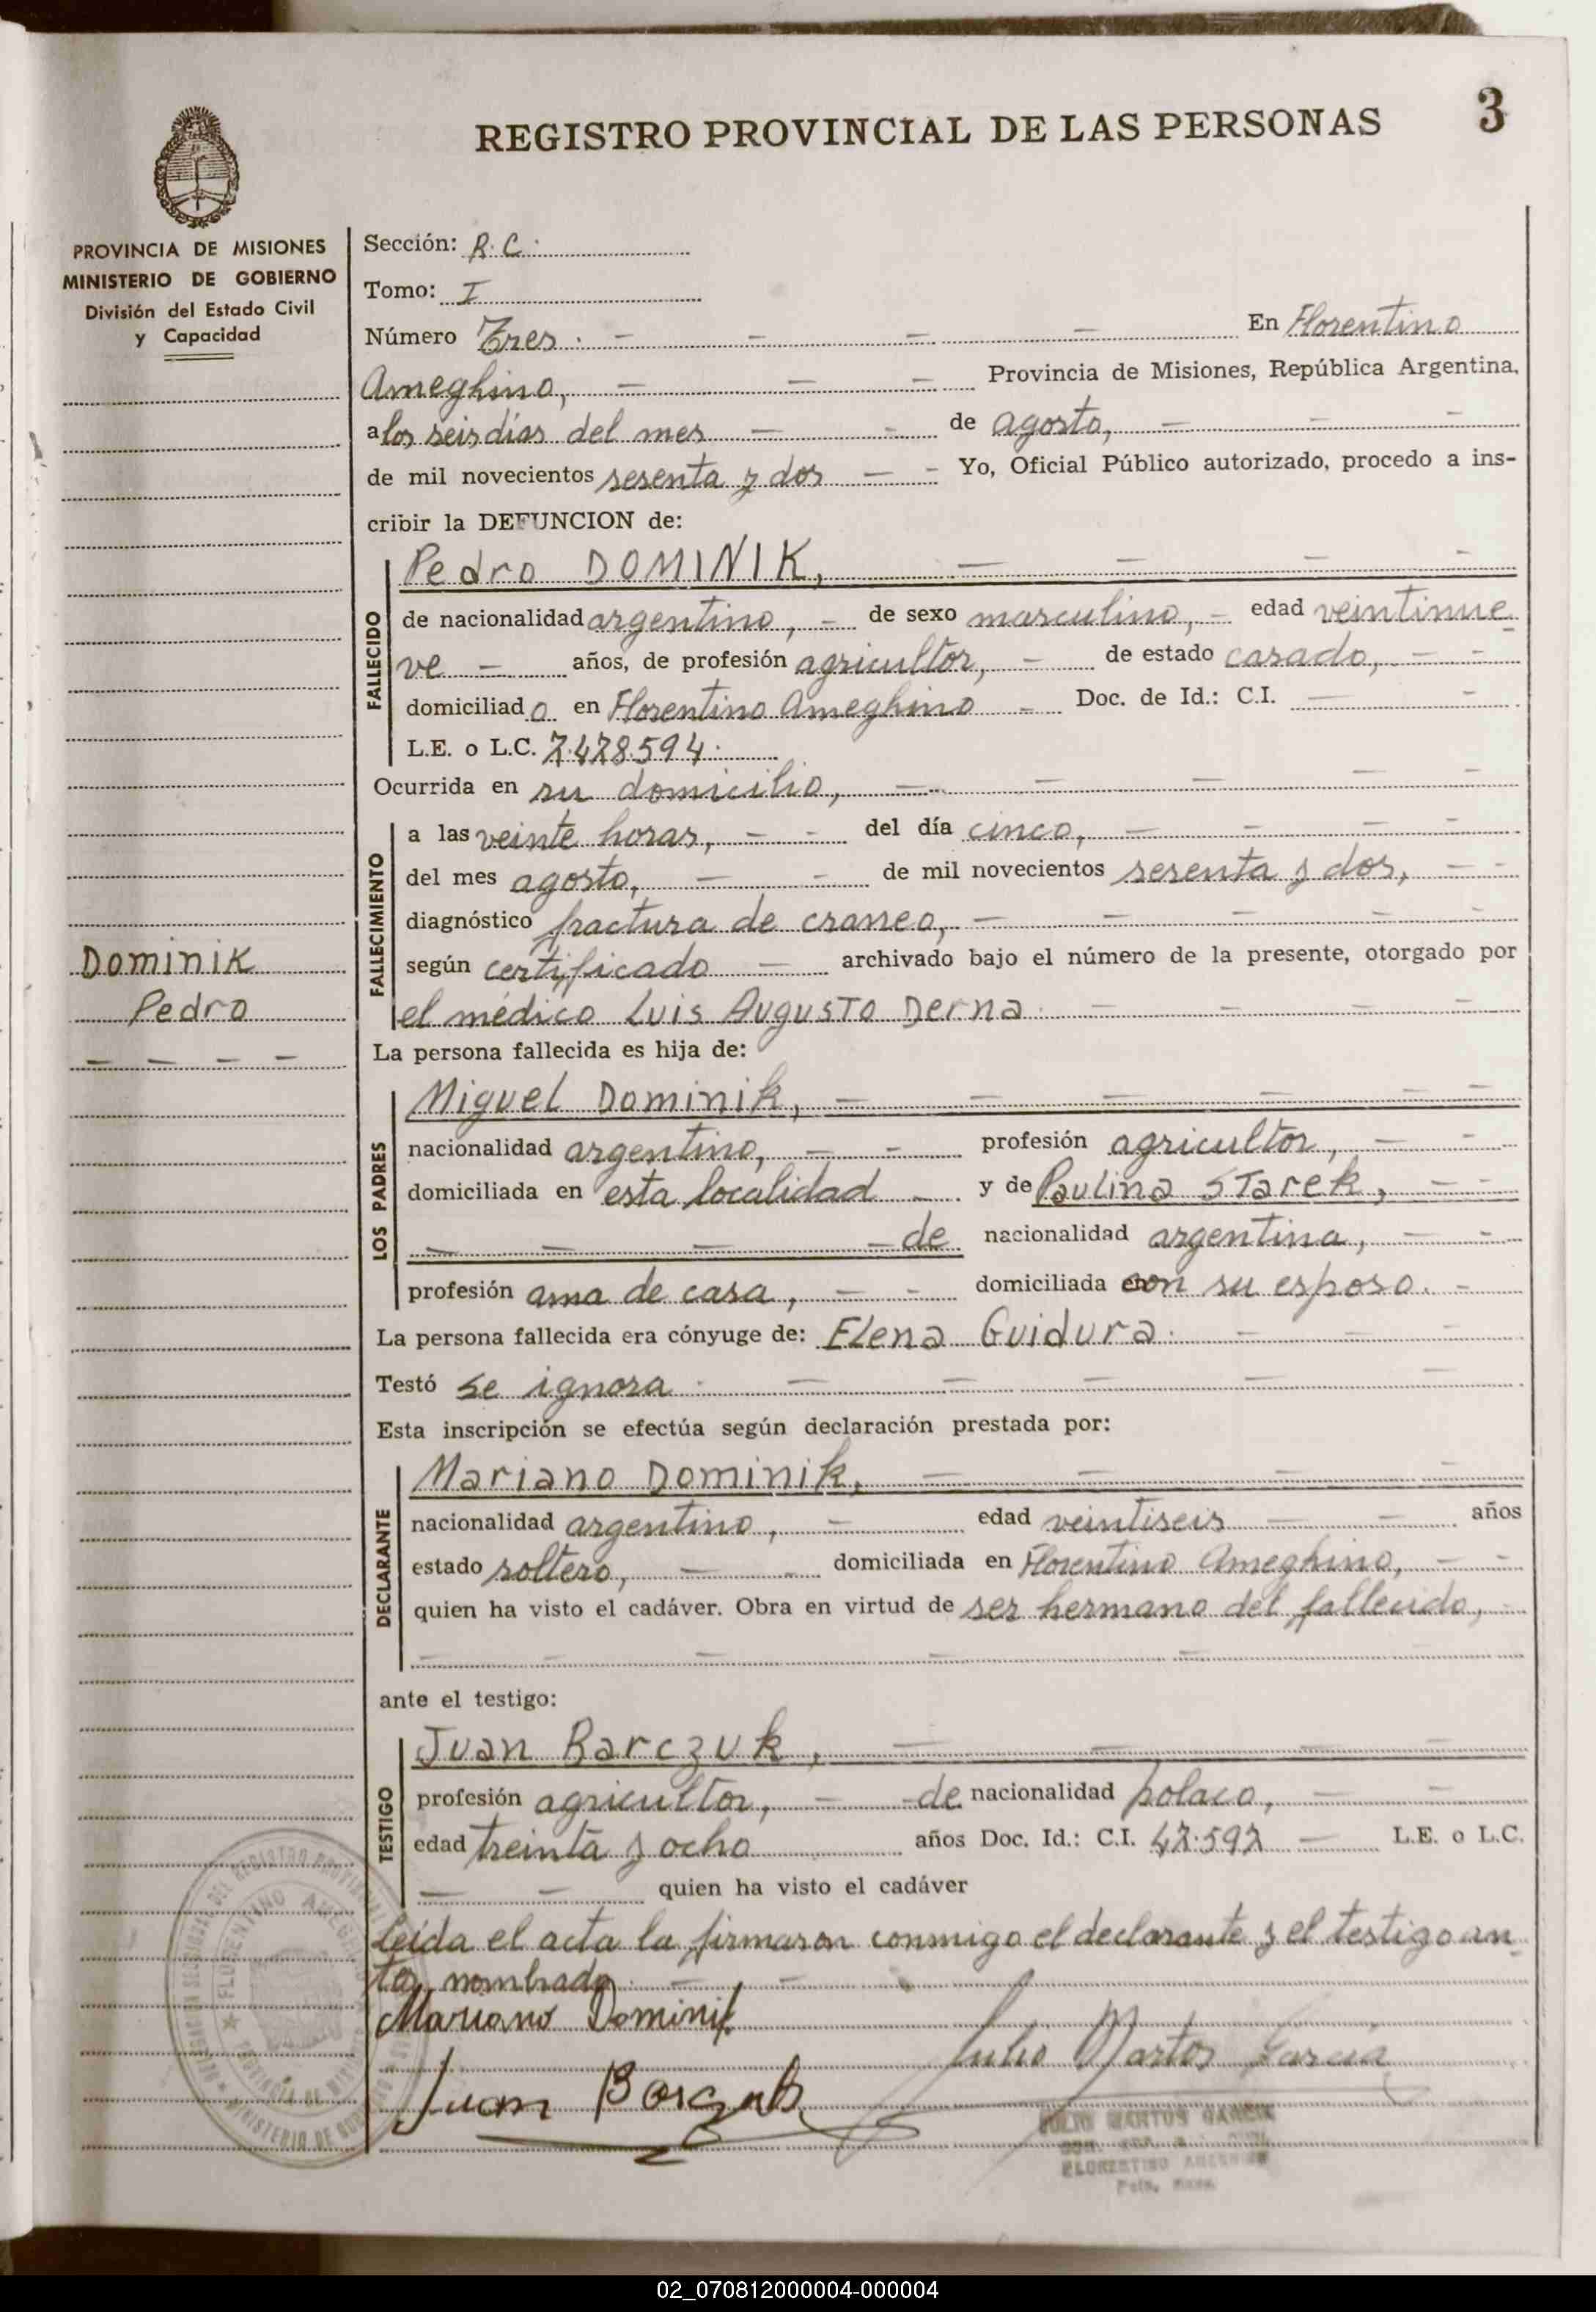 3
REGISTRO PROVINCIAL DE LAS PERSONAS
PROVINCIA DE MISIONES
MINISTERIO DE GOBIERNO
División del Estado Civil
y Capacidad
Sección: R. C.
Tomo: I
Número Tres. — — — — En Florentino
Ameghino, — — — Provincia de Misiones, República Argentina,
a los seis días del mes — - de agosto, — — —
de mil novecientos sesenta y dos — - Yo, Oficial Público autorizado, procedo a ins-
cribir la DEFUNCION de:
FALLECIDO
Pedro DOMINIK, — — — —
de nacionalidad argentino, — de sexo masculino, - edad veintinue
ve — años, de profesión agricultor, — de estado casado, — -
domiciliado en Florentino Ameghino — Doc. de Id.: C.I. — -
L.E. o L.C. 7.478.594.
Ocurrida en su domicilio, — — — — —
FALLECIMIENTO
a las veinte horas, — - del día cinco, — — — —
del mes agosto, — - de mil novecientos sesenta y dos, — -
diagnóstico fractura de craneo, — — — — —
según certificado — archivado bajo el número de la presente, otorgado por
el médico Luis Augusto Derna. — — — —
Dominik
Pedro
— — — —
La persona fallecida es hija de:
LOS PADRES
Miguel Dominik, — — — — — —
nacionalidad argentino, — - profesión agricultor, — -
domiciliada en esta localidad — y de Paulina Starek, — -
— — — — de nacionalidad argentina, — -
profesión ama de casa, — - domiciliada con su esposo. -
La persona fallecida era cónyuge de: Elena Guidura. — — —
Testó se ignora. — — — — —
Esta inscripción se efectúa según declaración prestada por:
DECLARANTE
Mariano Dominik, — — — —
nacionalidad argentino, — edad veintiseis — — años
estado soltero, — domiciliada en Florentino Ameghino, — -
quien ha visto el cadáver. Obra en virtud de ser hermano del fallecido, -
— — — — — —
ante el testigo:
TESTIGO
Juan Barczuk, — — — —
profesión agricultor, — de nacionalidad polaco, — -
edad treinta y ocho años Doc. Id.: C.I. 47.597 — L.E. o L.C.
— — quien ha visto el cadáver
Leída el acta la firmaron conmigo el declarante y el testigo an
tes nombrado. — —
Mariano Dominik
Julio Martos García
Juan Barczuk
JULIO MARTOS GARCIA
FLORENTINO AMEGHINO
FLORENTINO AMEGHINO
PROVINCIA DE MISIONES
MINISTERIO DE GOBIERNO
02_070812000004-000004